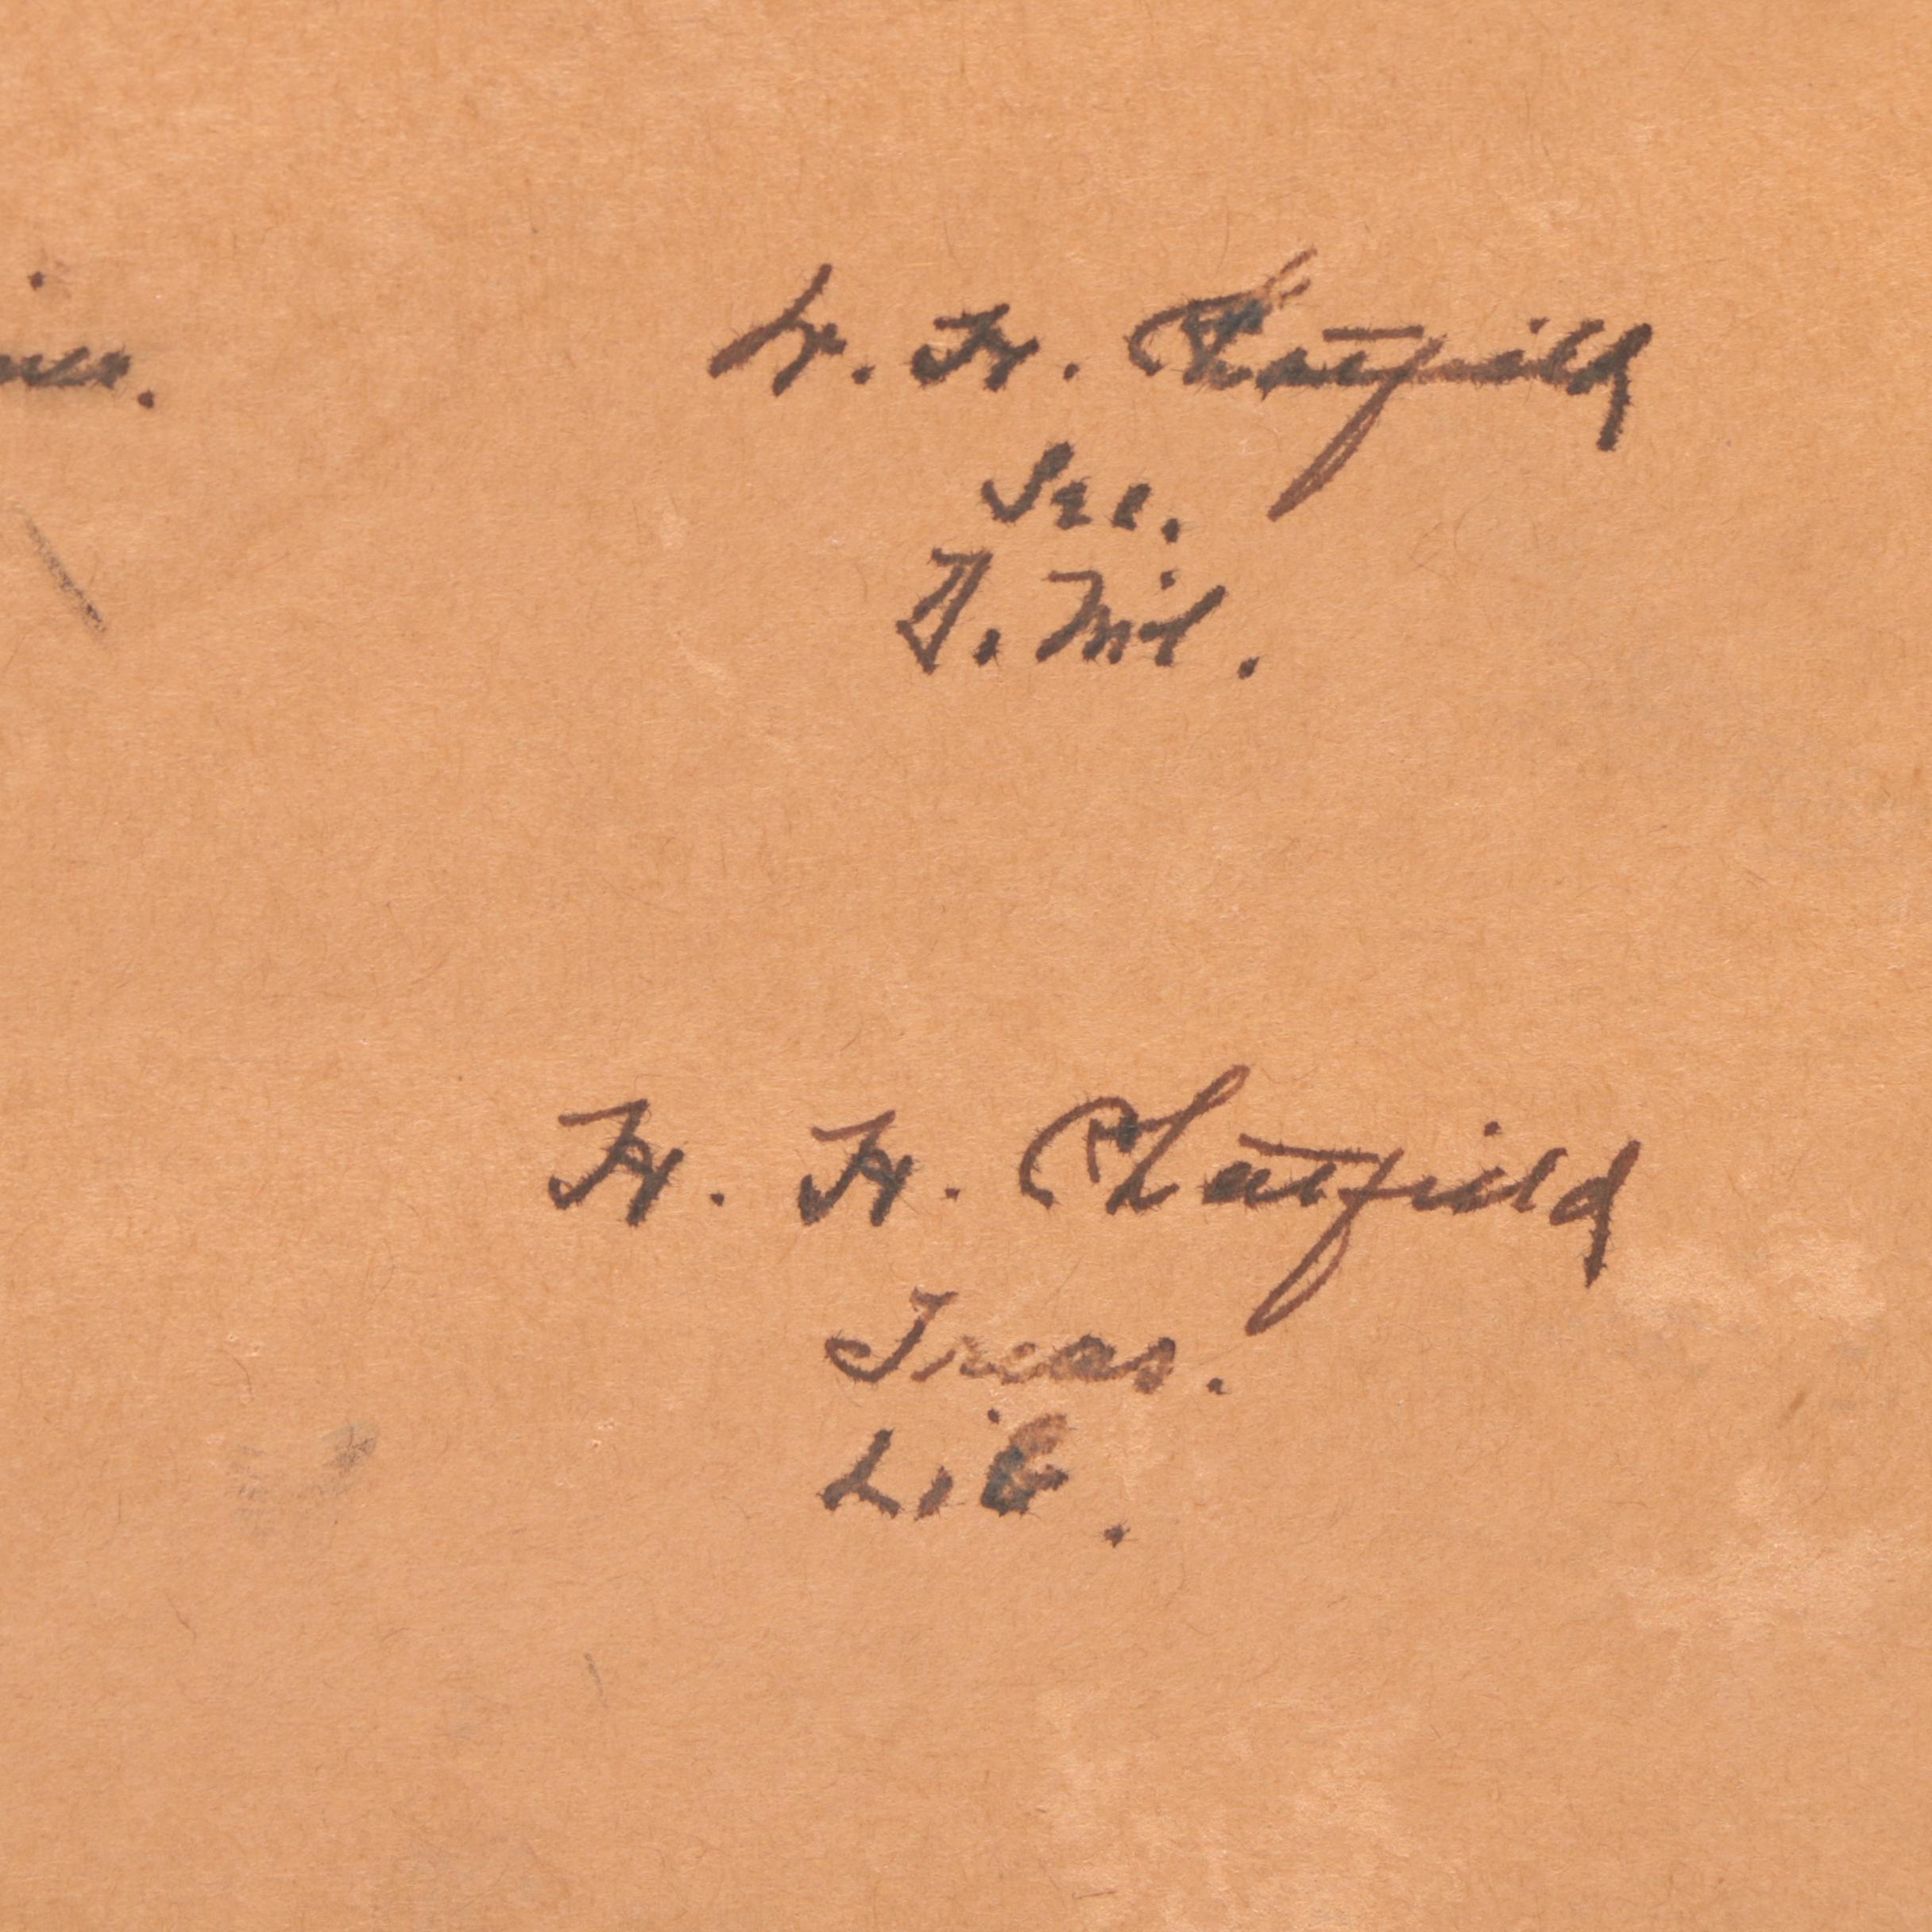 H. H. Chatfield
Sec.
D. Mil.
H. H. Chatfield
Treas.
Lib.